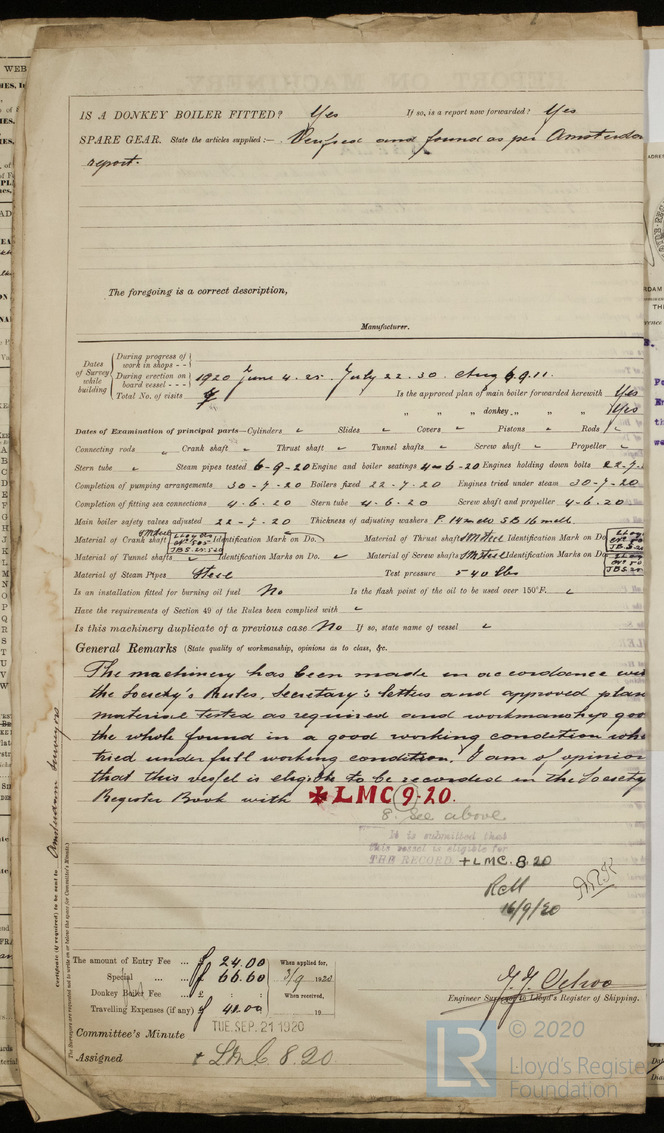 IS A DONKEY BOILER FITTED? Yes If so, is a report now forwarded? Yes
SPARE GEAR. State the articles supplied:— Verified and found as per Amsterda
report.
The foregoing is a correct description,
Manufacturer.
Dates of Survey while building
During progress of work in shops - -
During erection on board vessel - - - 1920 June 4. 25. July 22. 30. Aug 6. 9. 11.
Total No. of visits 7 Is the approved plan of main boiler forwarded herewith Yes
" " " donkey " " " Yes
Dates of Examination of principal parts—Cylinders Slides Covers Pistons Rods
Connecting rods Crank shaft Thrust shaft Tunnel shafts Screw shaft Propeller
Stern tube Steam pipes tested 6-9-20 Engine and boiler seatings 4-6-20 Engines holding down bolts 22-7.
Completion of pumping arrangements 30-7-20 Boilers fixed 22-7-20 Engines tried under steam 30-7-20
Completion of fitting sea connections 4.6.20 Stern tube 4-6-20 Screw shaft and propeller 4-6.20
Main boiler safety valves adjusted 22-7.20 Thickness of adjusting washers P. 14 m S B 16 m
Material of Crank shaft S M Steel Identification Mark on Do. Material of Thrust shaft S M Steel Identification Mark on Do
Material of Tunnel shafts Identification Marks on Do. Material of Screw shafts S M Steel Identification Marks on Do
Material of Steam Pipes Steel Test pressure 540 lbs
Is an installation fitted for burning oil fuel No Is the flash point of the oil to be used over 150°F.
Have the requirements of Section 49 of the Rules been complied with
Is this machinery duplicate of a previous case No If so, state name of vessel
General Remarks (State quality of workmanship, opinions as to class, &c.
The machinery has been made in accordance wit
the Society's Rules, Secretary's letters and approved plan
material tested as required and workmanship goo
the whole found in a good working condition whe
tried under full working condition. I am of opinion
that this vessel is eligible to be recorded in the Society
Register Book with ✠ LMC 9-20.
8. See above
It is submitted that
this vessel is eligible for
THE RECORD. + LMC. 8.20
16/9/20
Certificate (if required) to be sent to Amsterdam Surveyors
The Surveyors are requested not to write on or below the space for Committee's Minute.
The amount of Entry Fee ... £ 24.00 When applied for,
Special ... ... £ 66.60 3/9 1920
Donkey Boiler Fee ... £ : : When received,
Travelling Expenses (if any) £ 40.00 19
Engineer Surveyor to Lloyd's Register of Shipping.
TUE. SEP. 21 1920
Committee's Minute
Assigned + LMC 8.20
LR © 2020
Lloyd's Registe
Foundation